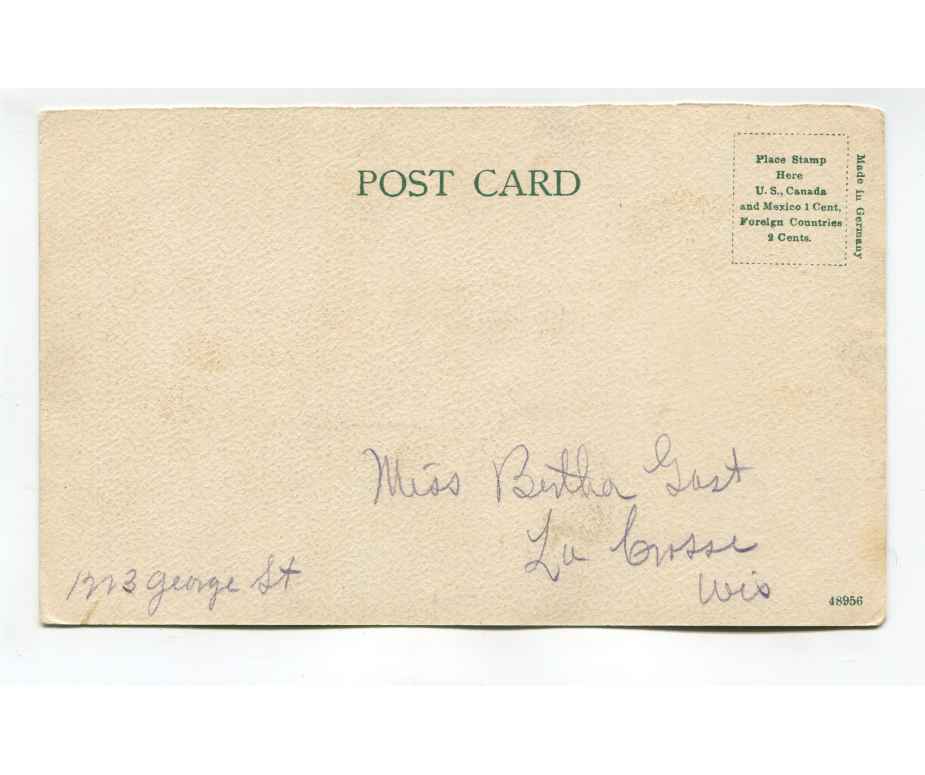 POST CARD
Place Stamp
Here
U. S., Canada
and Mexico 1 Cent.
Foreign Countries
2 Cents.
Made in Germany
Miss Bertha Gast
La Crosse
Wis
1223 George St
48956